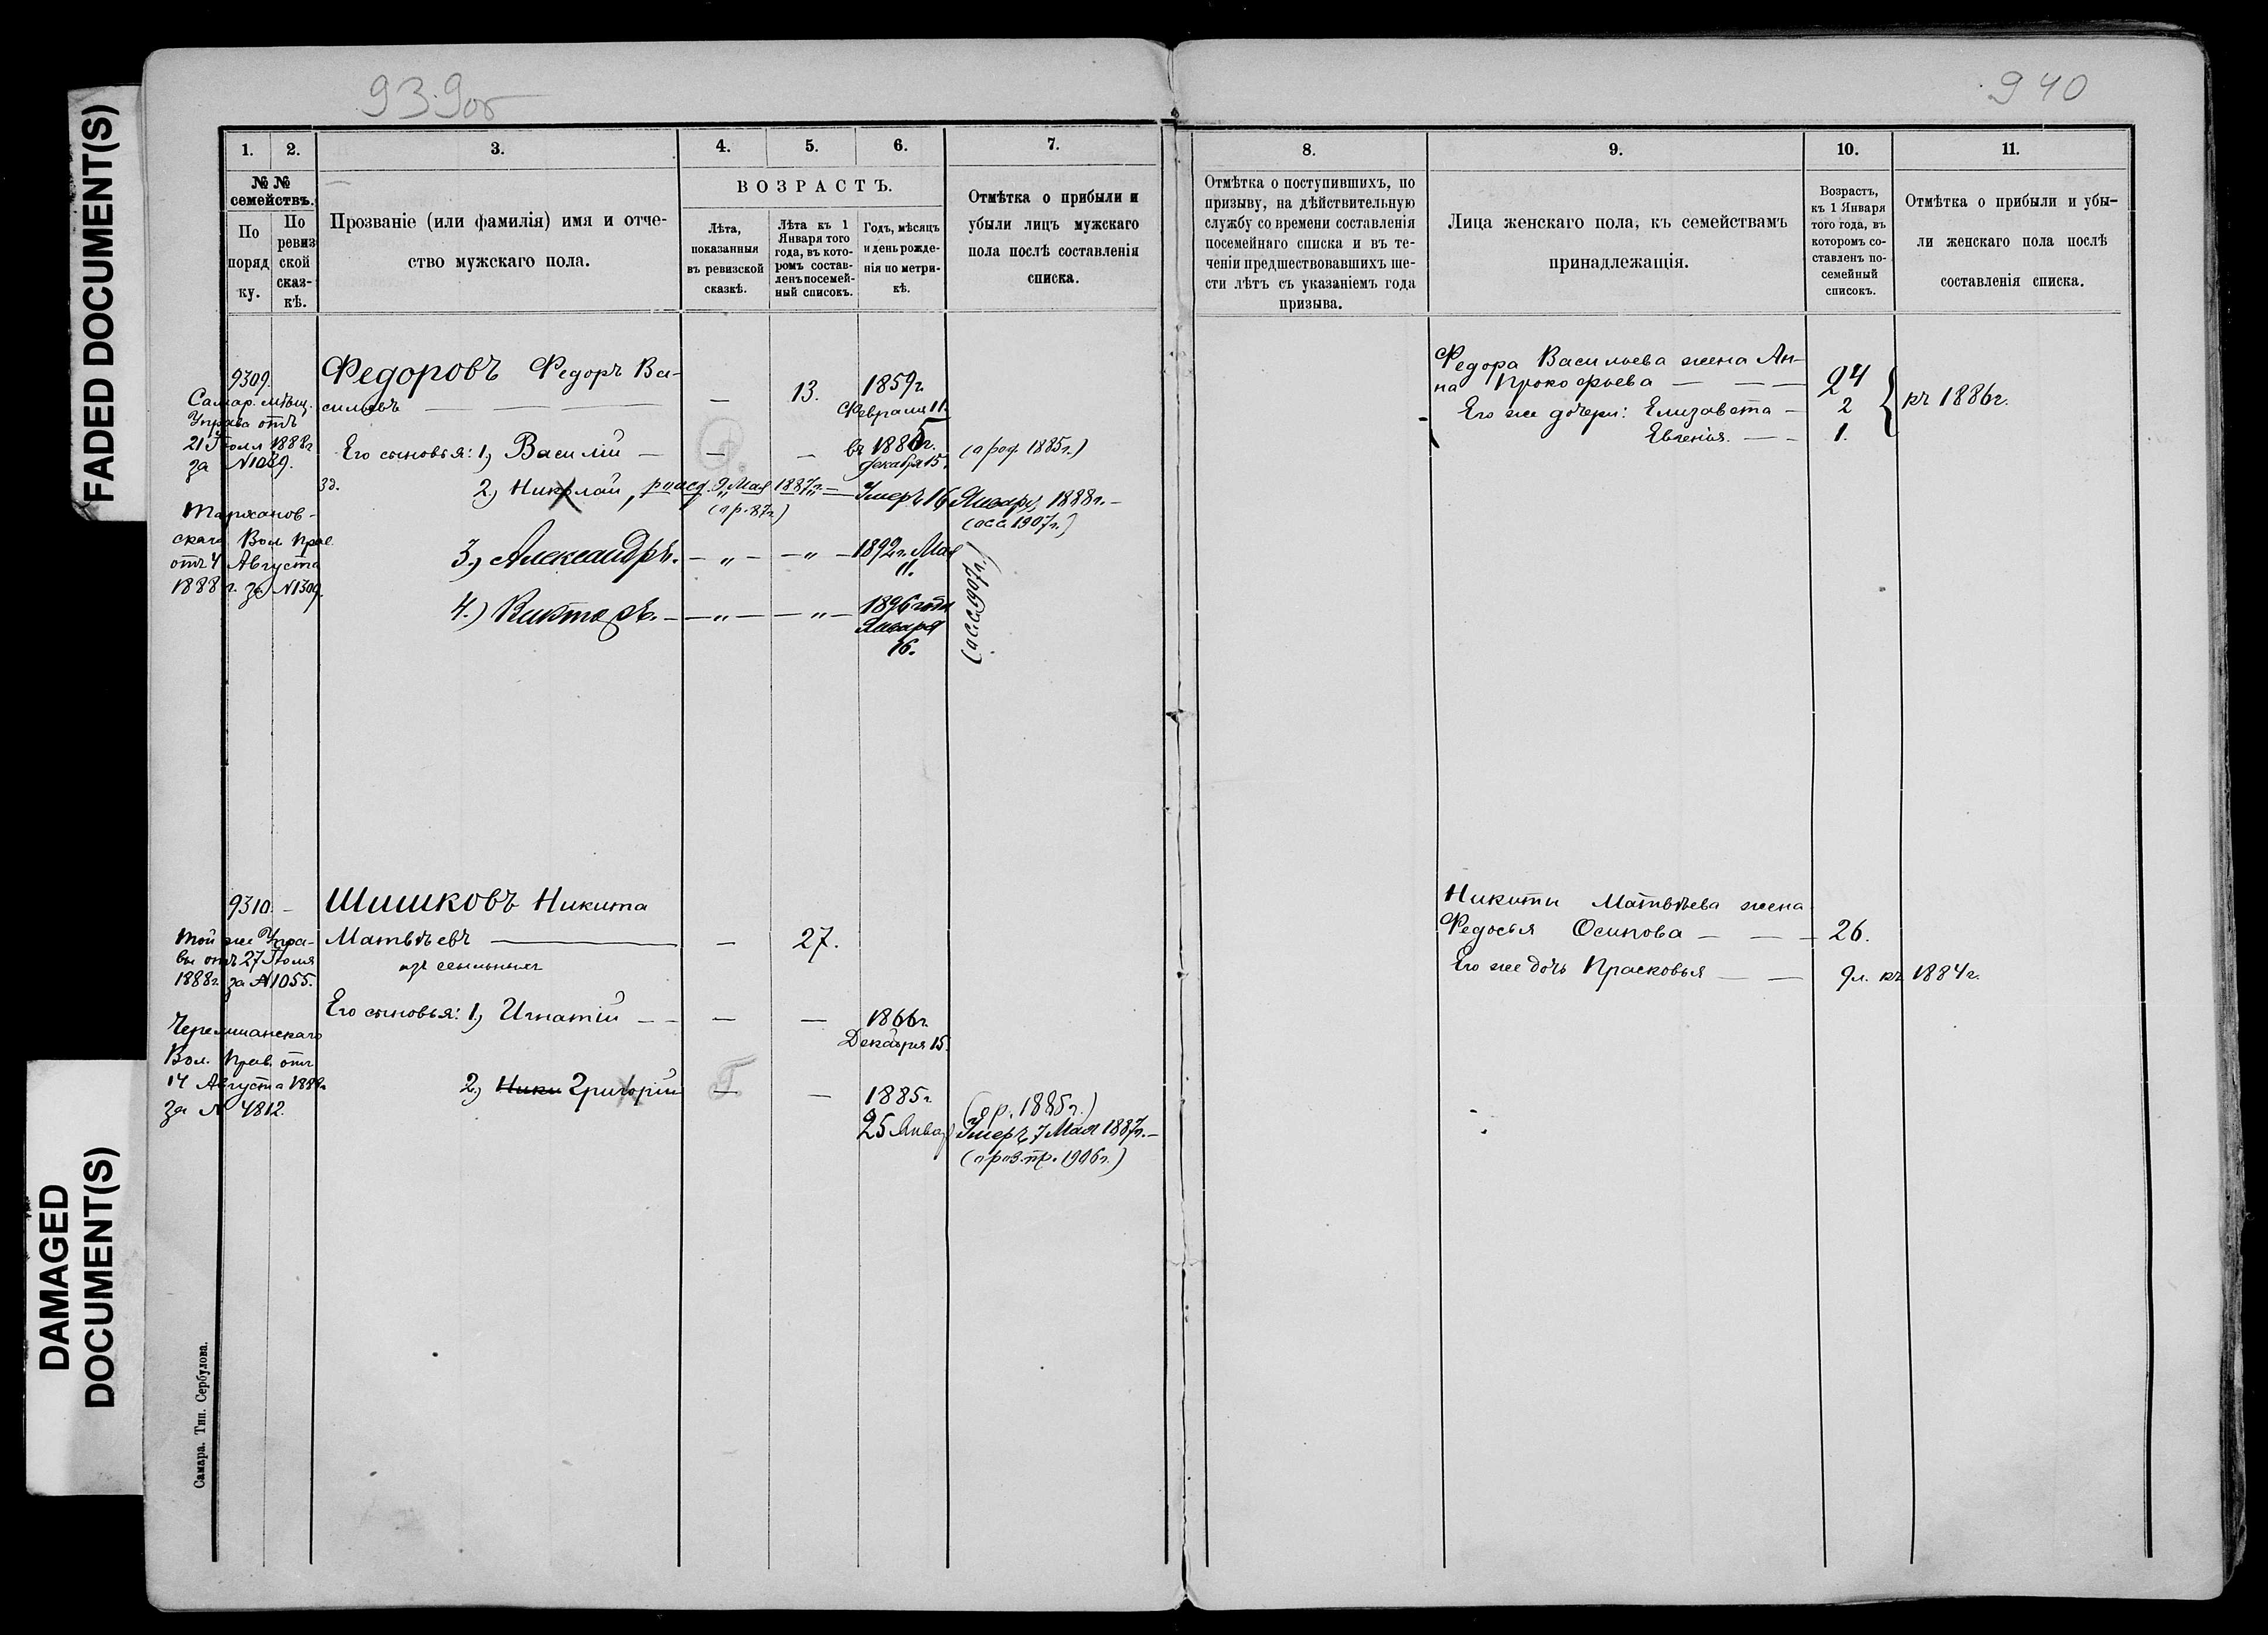 FADED DOCUMENT(S)
DAMAGED
DOCUMENT(S)
939об
940
1.
2.
3.
4.
5.
6.
7.
№ №
семействъ.
По
поряд
ку.
По
ревиз
ской
сказ-
кѣ.
Прозваніе (или фамилія) имя и отче-
ство мужскаго пола.
ВОЗРАСТЪ.
Лѣта,
показанныя
въ ревизской
сказкѣ.
Лѣта къ 1
Января того
года, въ кото-
ромъ состав-
ленъ посемей-
ный списокъ.
Годъ, мѣсяцъ
и день рожде-
нія по метри-
кѣ.
Отмѣтка о прибыли и
убыли лицъ мужскаго
пола послѣ составленія
списка.
8.
9.
10.
11.
Отмѣтка о поступившихъ, по
призыву, на дѣйствительную
службу со времени составленія
посемейнаго списка и въ те-
ченіи предшествовавшихъ ше-
сти лѣтъ съ указаніемъ года
призыва.
Лица женскаго пола, къ семействамъ
принадлежащія.
Возрастъ,
къ 1 Января
того года, въ
которомъ со-
ставленъ по-
семейный
списокъ.
Отмѣтка о прибыли и убы-
ли женскаго пола послѣ
составленія списка.
9309.
Самар. мѣщ.
Управа отъ
21 Іюля 1888г
за №1029.
Федоровъ Федоръ Ва-
сильевъ — — — — 13. 1859г
Февраля 11.
Его сыновья: 1, Василій — — — въ 1885г. (о род. 1885г.)
декабря 15.
Зд. 2, Николай, 9 Мая 1887г. — Умеръ 16 Января 1888г. —
(о р. 87г)
(осс. 1907г.)
3.) Александръ. — „ — — „ — 1892г. Мая
11.
4.) Викторъ. — — „ — — „ — 1896 года
Января
16.
(осс. 1907г.)
Вол. Прав.
отъ 4 Августа
1888 г. за №1309.
Федора Васильева жена Ан-
на Прокофьева — — — 24
Его же дочери: Елизавета — 2
Евгенія. — — 1.
къ 1886г.
9310. —
Той же Упра-
вы отъ 27 Іюля
1888г. за №1055.
Черемшанскаго
Вол. Прав. отъ
14 Августа 1888г
за № 4812.
Шишковъ Никита
Матвѣевъ — — 27.
изъ ссыльныхъ
Его сыновья: 1, Игнатій — — — — 1866г.
Декабря 15.
2, Ники Григорій — — 1885г.
25 Январ
(о р. 1885г.)
Умеръ 7 Мая 1887г. —
(о роз. пр. 1906г.)
Никиты Матвѣева жена
Федосья Осипова — — — 26.
Его же дочь Прасковья — — 9л. къ 1884г.
Самара. Тип. Сербулова.